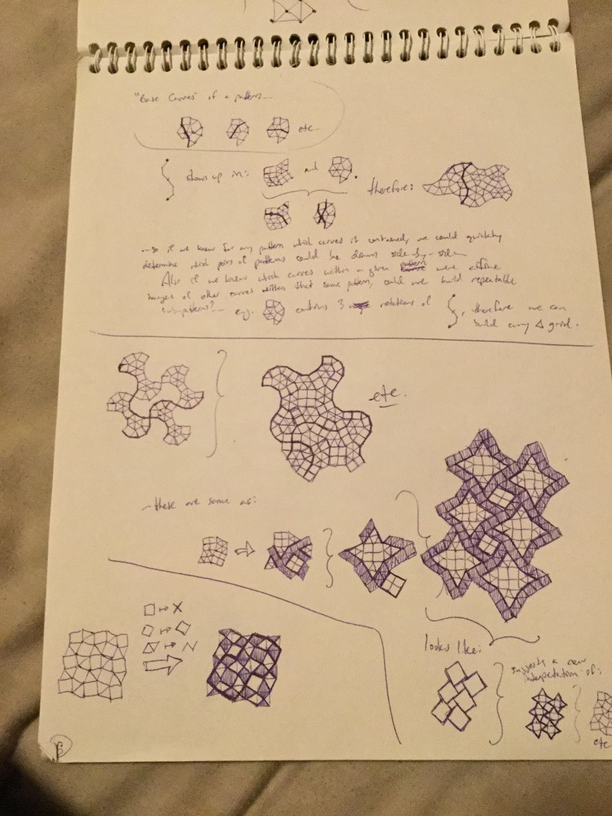 "Base Curves" of a pattern...
etc.
shows up in: and therefore:
-- so if we knew for any pattern which curves it contained, we could quickly
determine which pairs of patterns could be drawn side-by-side.
Also if we knew which curves within a given pattern were affine
images of other curves within that same pattern, could we build repeatable
subpatterns? -- e.g. contains 3 rotations of , therefore we can
build curvy Δ grid.
etc.
- these are same as:
looks like:
suggests a new
interpretation of:
etc